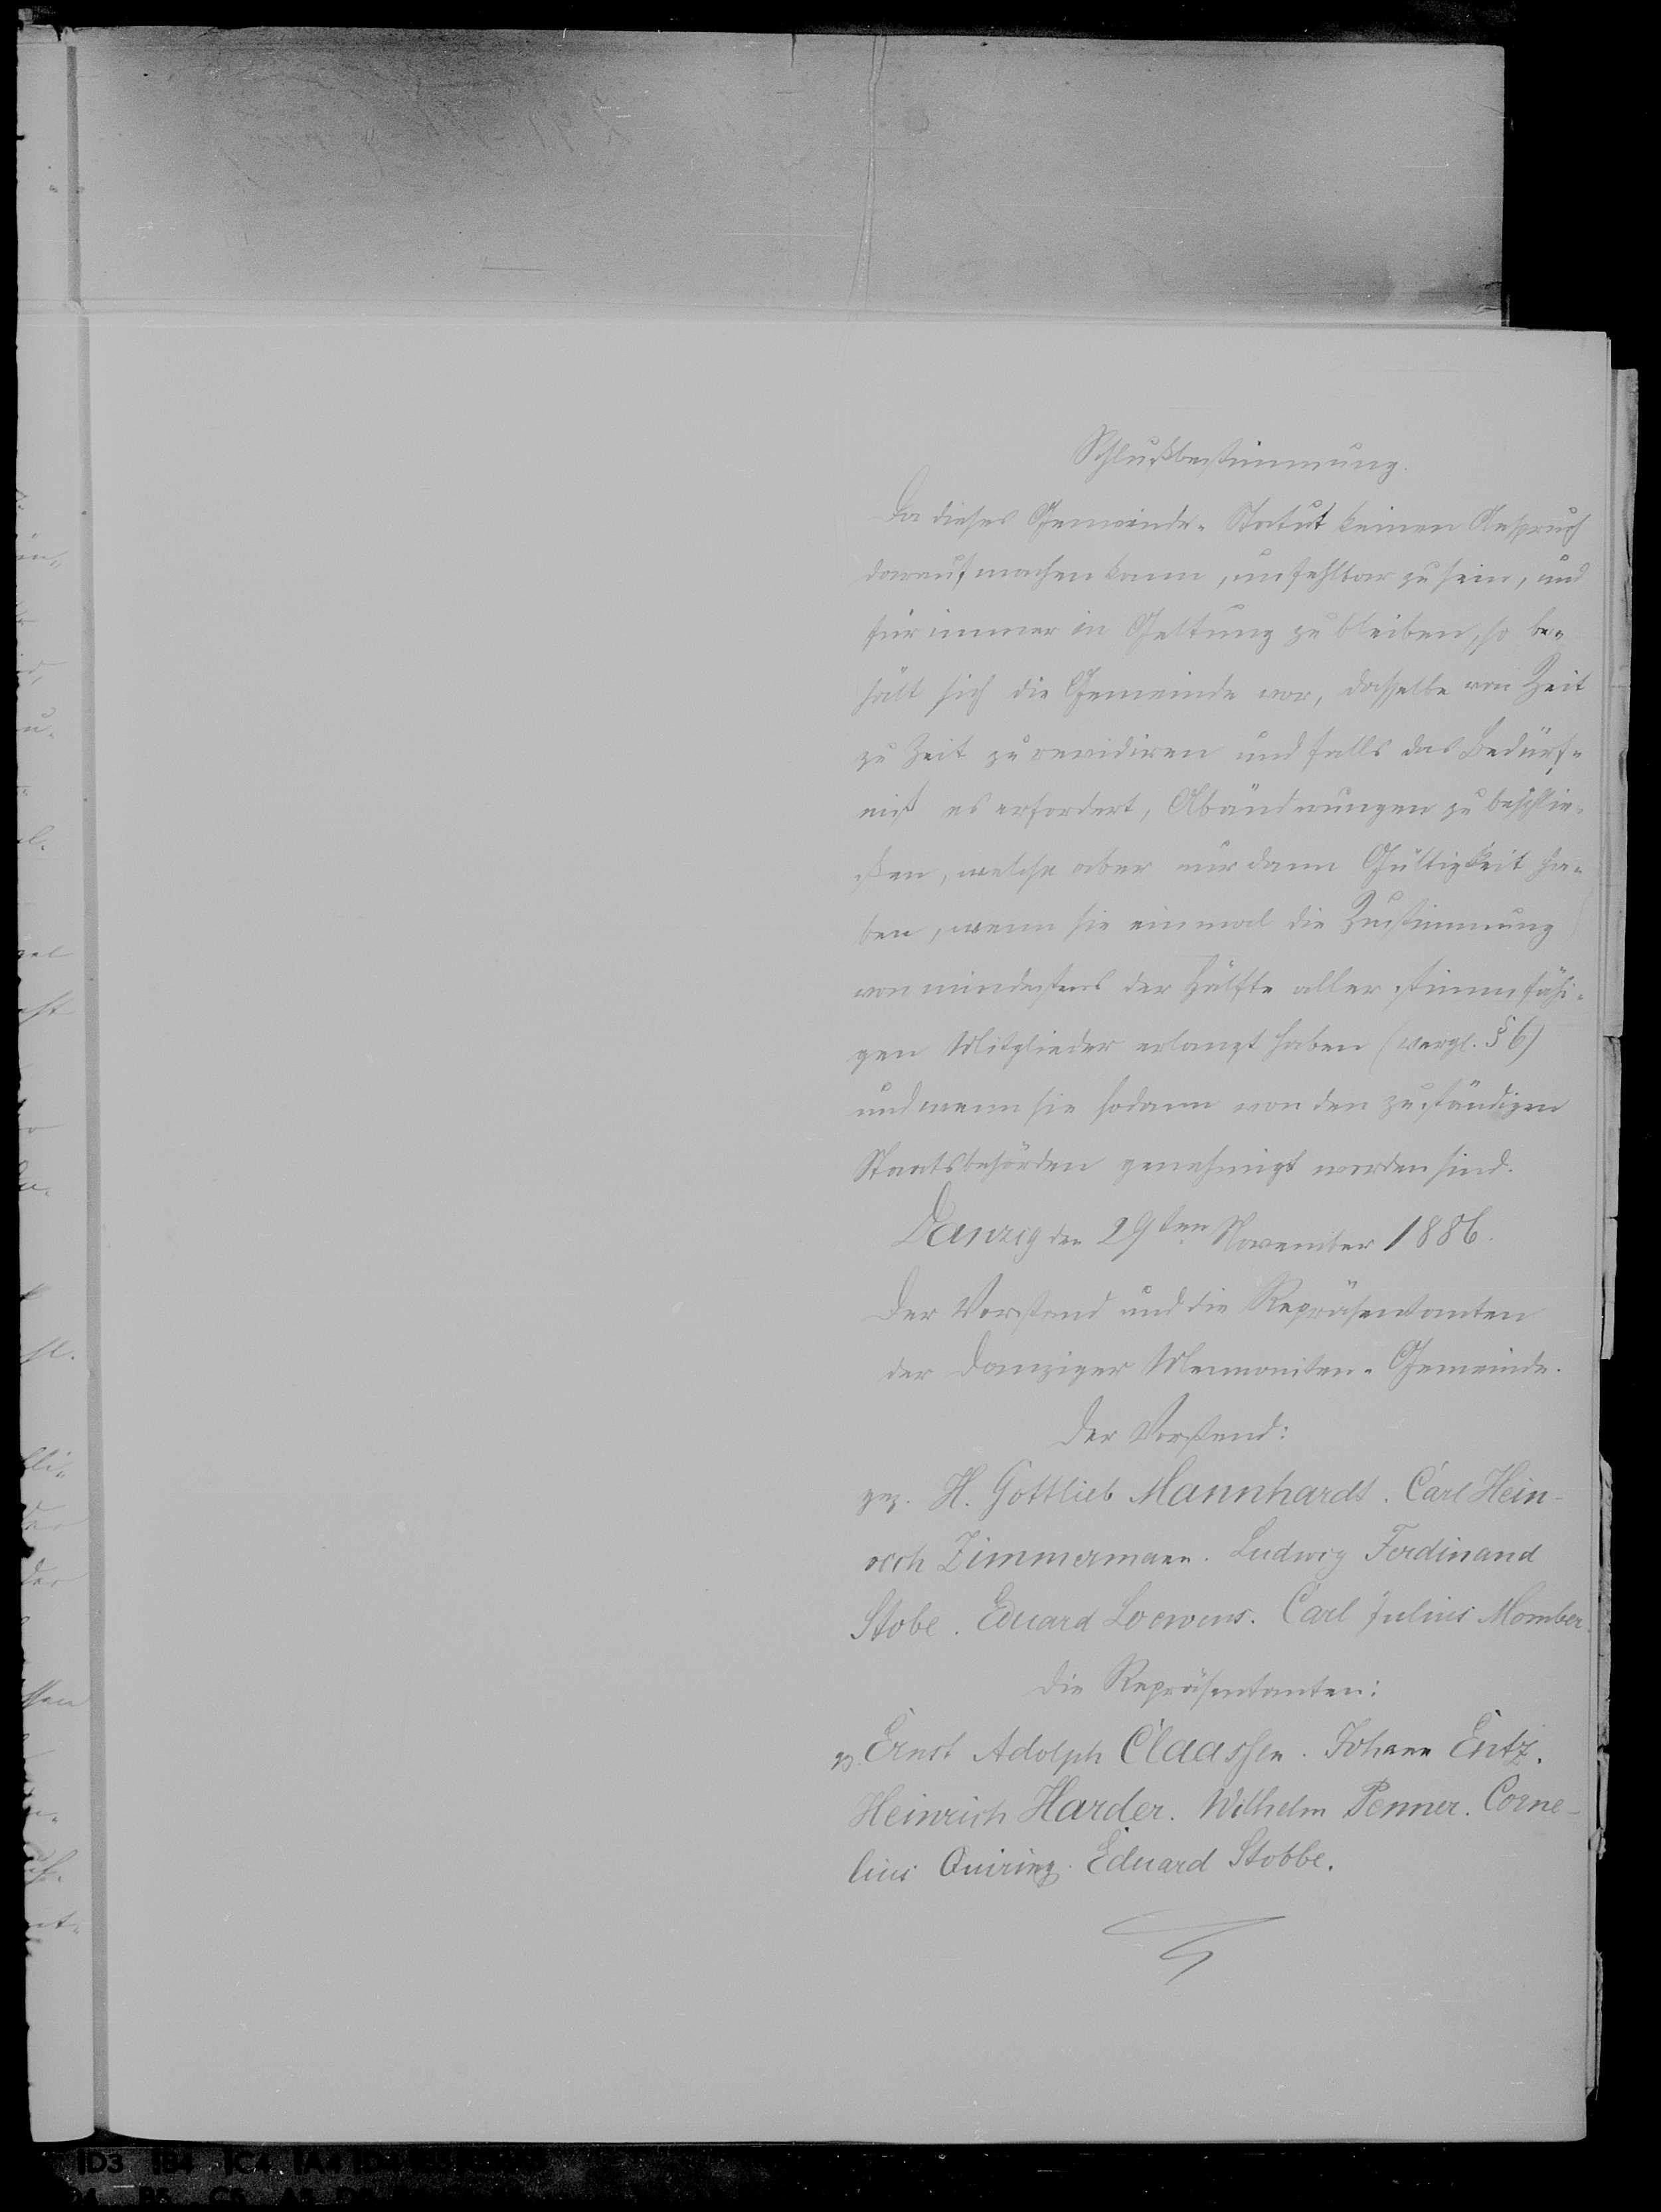 Schlußbestimmung.
Da dieses Gemeinde-Statut keinen Anspruch
darauf machen kann, unfehlbar zu sein, und
für immer in Geltung zu bleiben, so be-
hält sich die Gemeinde vor, dasselbe von Zeit
zu Zeit zu revidiren und falls das Bedürf-
niß es erfordert, Abänderungen zu beschlie-
ßen, welche aber nur dann Gültigkeit ha-
ben, wenn sie einmal die Zustimmung
von mindestens der Hälfte aller stimmfähi-
gen Mitglieder erlangt haben (vergl. § 6)
und wenn sie sodann von den zuständigen
Staatsbehörden genehmigt worden sind.
Danzig den 29ten November 1886.
Der Vorstand und die Repräsentanten
der Danziger Mennoniten-Gemeinde.
Der Vorstand:
gez. H. Gottlieb Mannhardt. Carl Hein-
rich Zimmermann. Ludwig Ferdinand
Stobe. Eduard Loewens. Carl Julius Momber.
Die Repräsentanten:
gz. Ernst Adolph Claassen. Johann Entz.
Heinrich Harder. Wilhelm Penner. Corne-
lius Quiring. Eduard Stobbe.